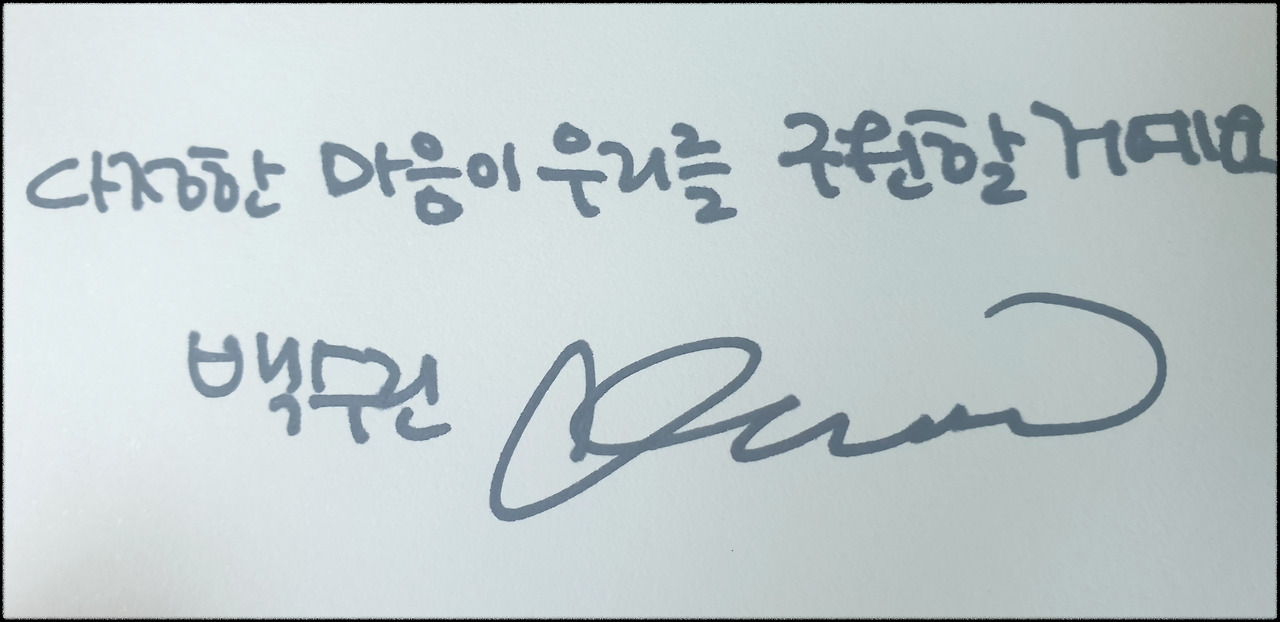 다정한 마음이 우리를 구원할 거예요
백수린